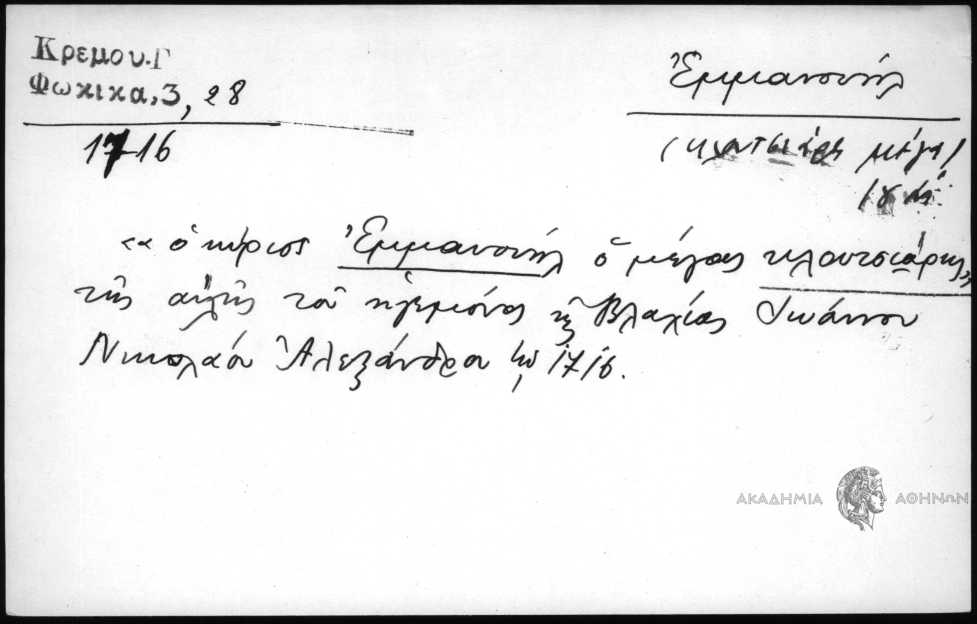 Κρεμου.Γ
Φωκικα,3, 28
1716
Ἐμμανουήλ
(κλουτσιάρης μέγας)
«ὁ κύριος Ἐμμανουήλ ὁ μέγας κλουτσιάρης»
τῆς αὐλῆς τοῦ ἡγεμόνος τῆς Βλαχίας Ἰωάννου
Νικολάου Ἀλεξάνδρου 1716.
ΑΚΑΔΗΜΙΑ ΑΘΗΝΩΝ